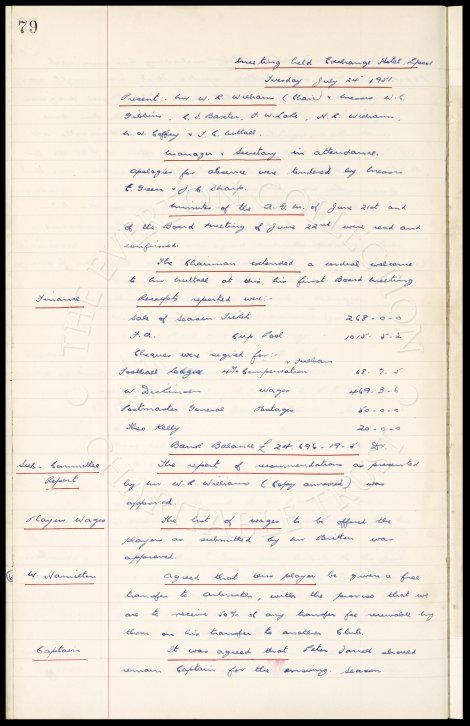 79
Meeting held Exchange Hotel, L'pool
Tuesday July 24th 1951.
Present. Mr W. R. Williams (Chair) & Messrs W. C.
Gibbins, C. S. Baxter, F. W. Lake, N. R. Williams,
W. W. Coffey & T. C. Nuttall.
Manager & Secretary in attendance.
Apologies for absence were tendered by Messrs
E. Green & J. C. Sharp.
Minutes of the A.G.M. of June 21st and
of the Board Meeting of June 22nd were read and
confirmed.
The Chairman extended a cordial welcome
to Mr Nuttall at this, his first Board Meeting.
Finance
Receipts reported were:-
Sale of Season Tickets 268-0-0
F.A. Cup Pool 1015-5-2
Cheques were signed for:-
Football League 4% Compensation & Jubilee 68-7-5
W. Dickinson Wages 469-3-6
Postmaster General Postages 50-0-0
Theo Kelly 20-0-0
Bank Balance £24,696-19-5 Dr.
Sub-Committee
Report
The report of recommendations as presented
by Mr W. R. Williams (Copy annexed) was
approved.
Players Wages
The list of wages to be offered the
players as submitted by Mr Britton was
approved.
W. Hamilton
Agreed that this player be given a free
transfer to with the proviso that we
are to receive 50% of any transfer fee receivable by
them on his transfer to another Club.
Captain
It was agreed that Peter Farrell should
remain Captain for the ensuing season
THE EVERTON COLLECTION